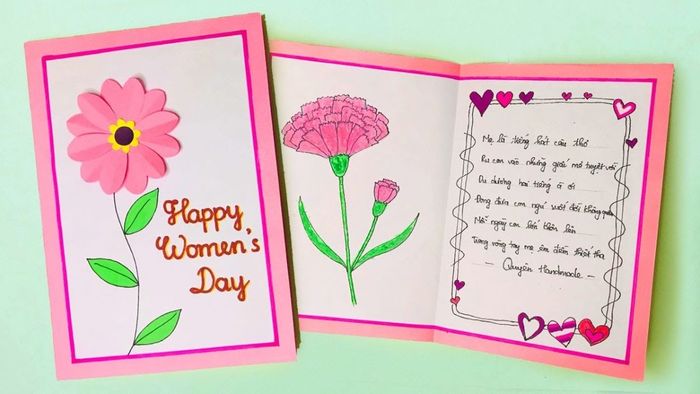 Happy
Women's
Day
Mẹ là tiếng hát câu thơ
Ru con vào những giấc mơ tuyệt vời
Du dương hai tiếng à ơi
Đong đưa con ngủ suốt đời không quên
Mỗi ngày con lớn thêm lên
Trong vòng tay mẹ êm đềm thiết tha
- Quyên Handmade -